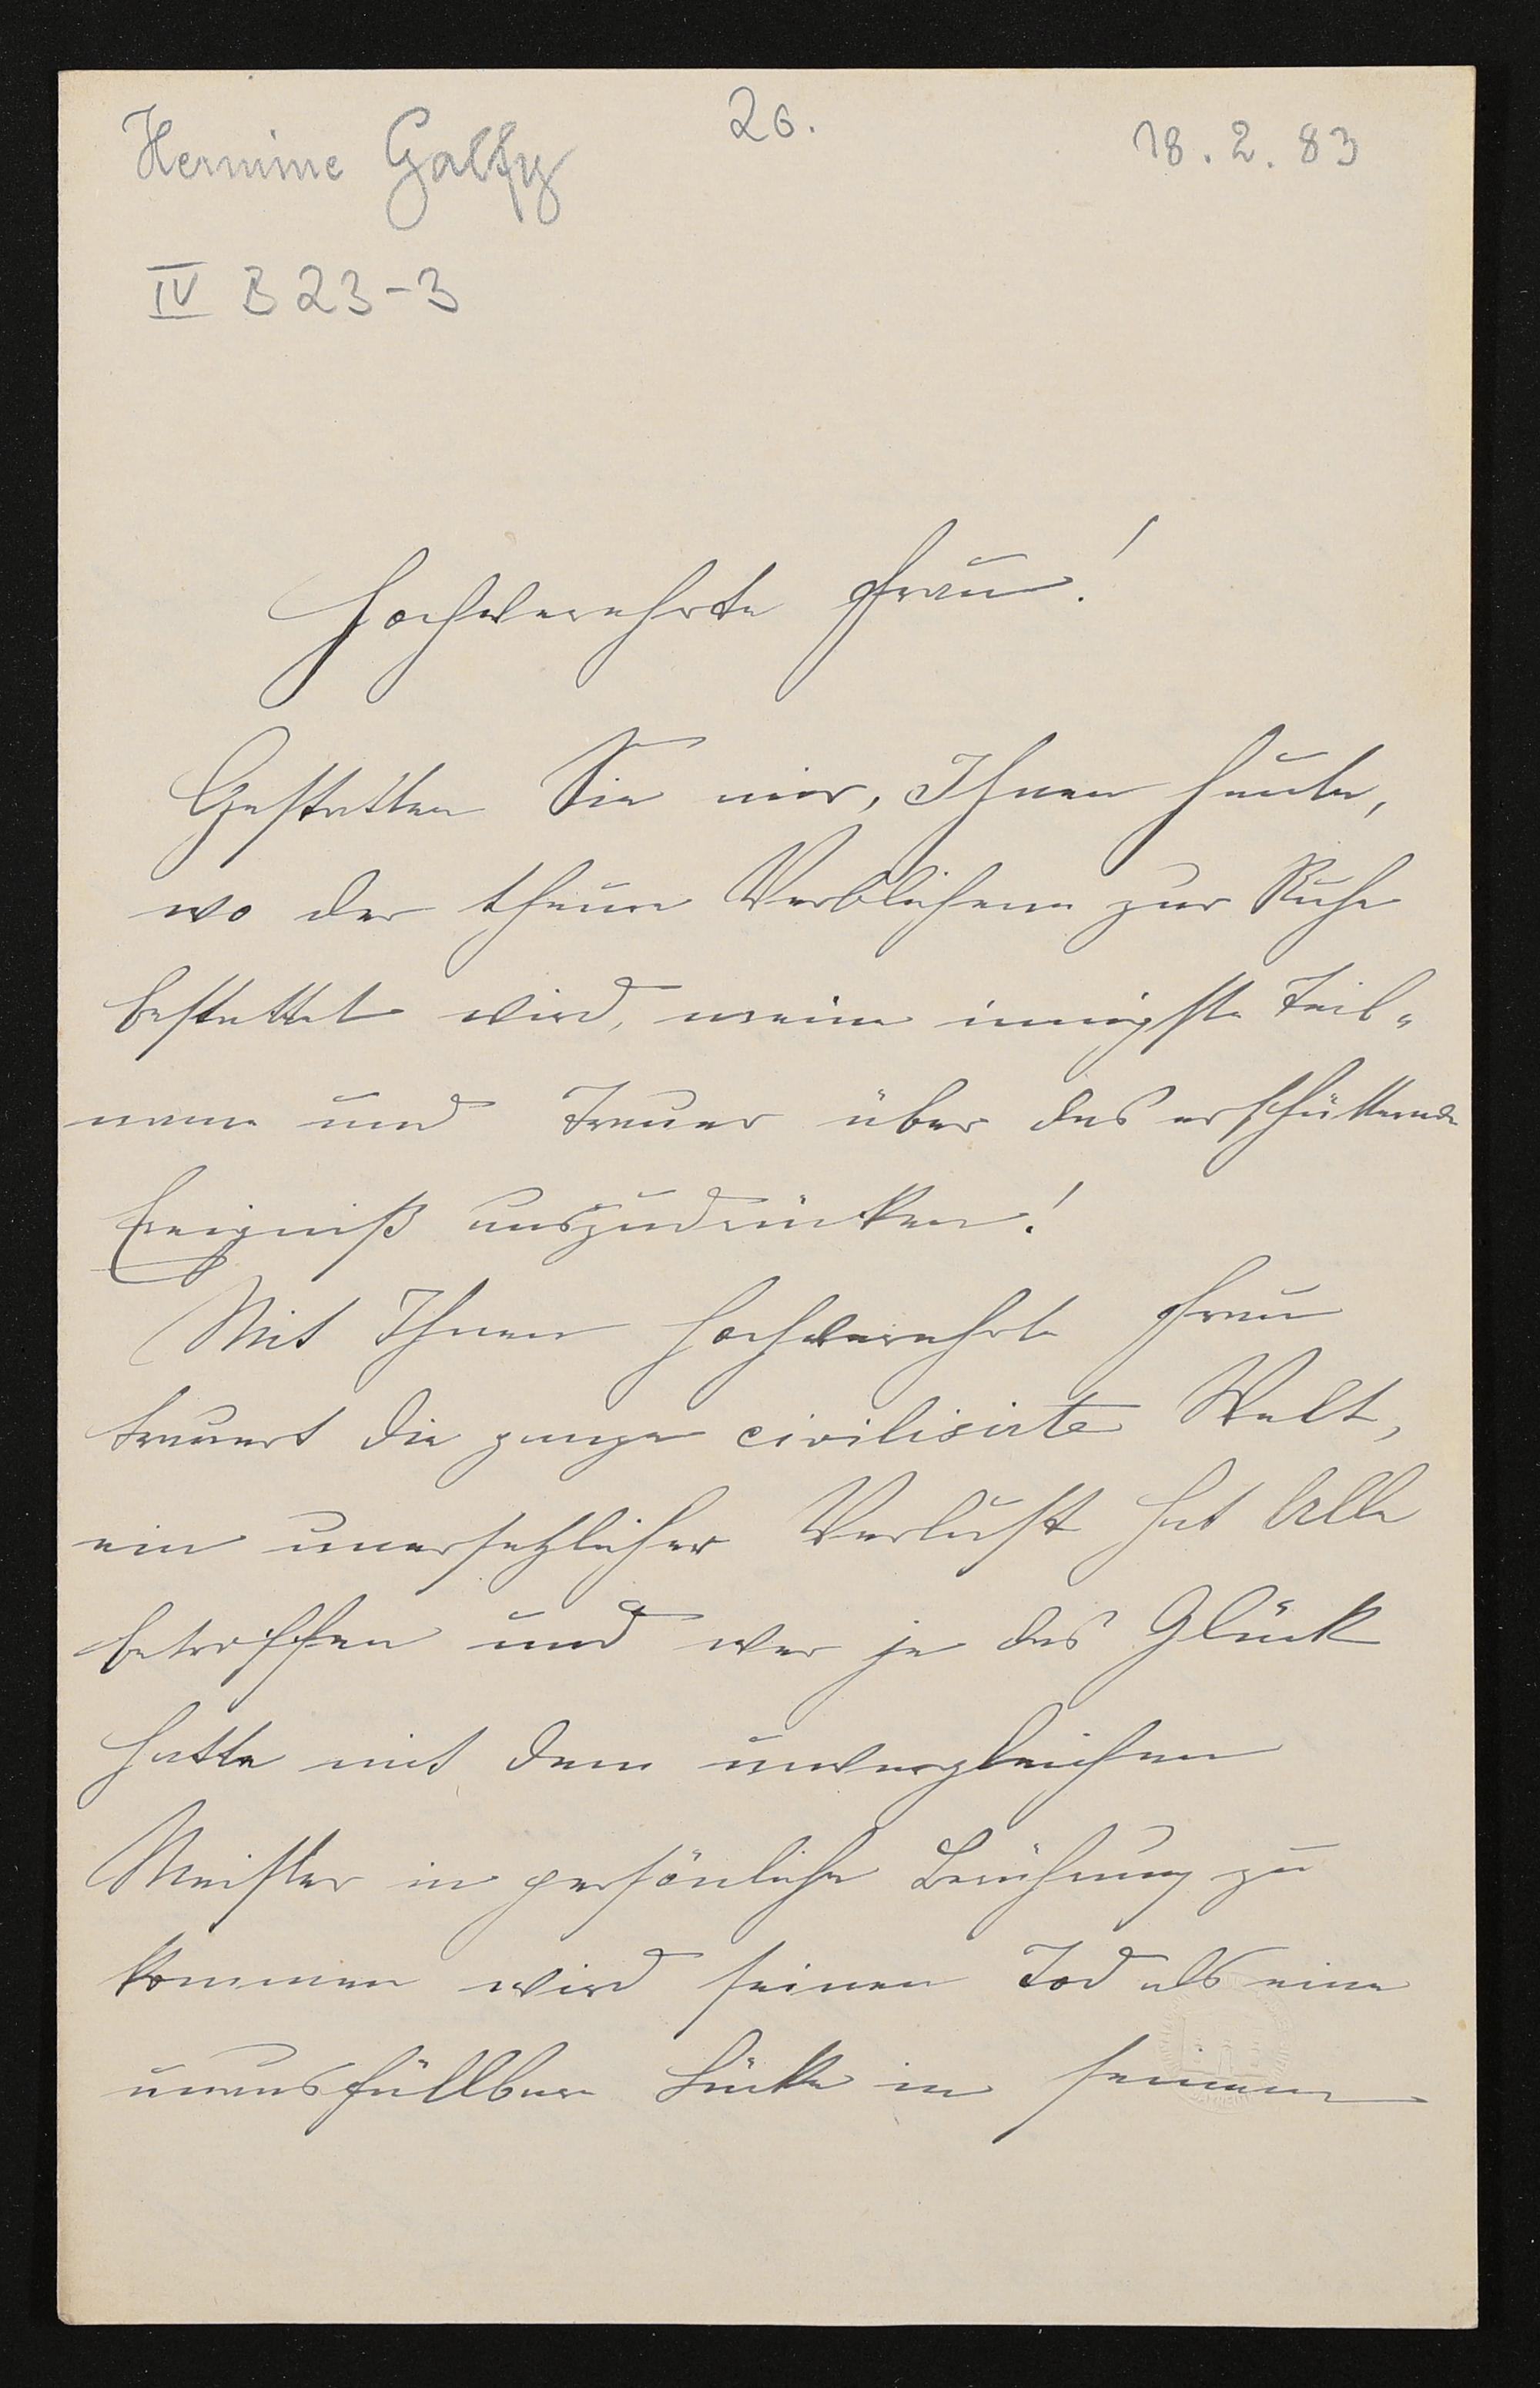 Hermine Galfy
26.
18. 2. 83
IV B 23-3
Hochverehrte Frau!
Gestatten Sie mir, Ihnen heute,
wo der theure Verblichene zur Ruhe
bestattet wird, meine innigste Teil-
name und Trauer über das erschütternde
Ereigniß auszudrücken!
Mit Ihnen hochverehrte Frau
trauert die ganze civilisirte Welt,
ein unersetzlicher Verlust hat Alle
betroffen und wer je das Glück
hatte mit dem unvergleichen
Meister in persönliche Berührung zu
kommen wird seinen Tod als eine
unausfüllbare Lücke in seinem